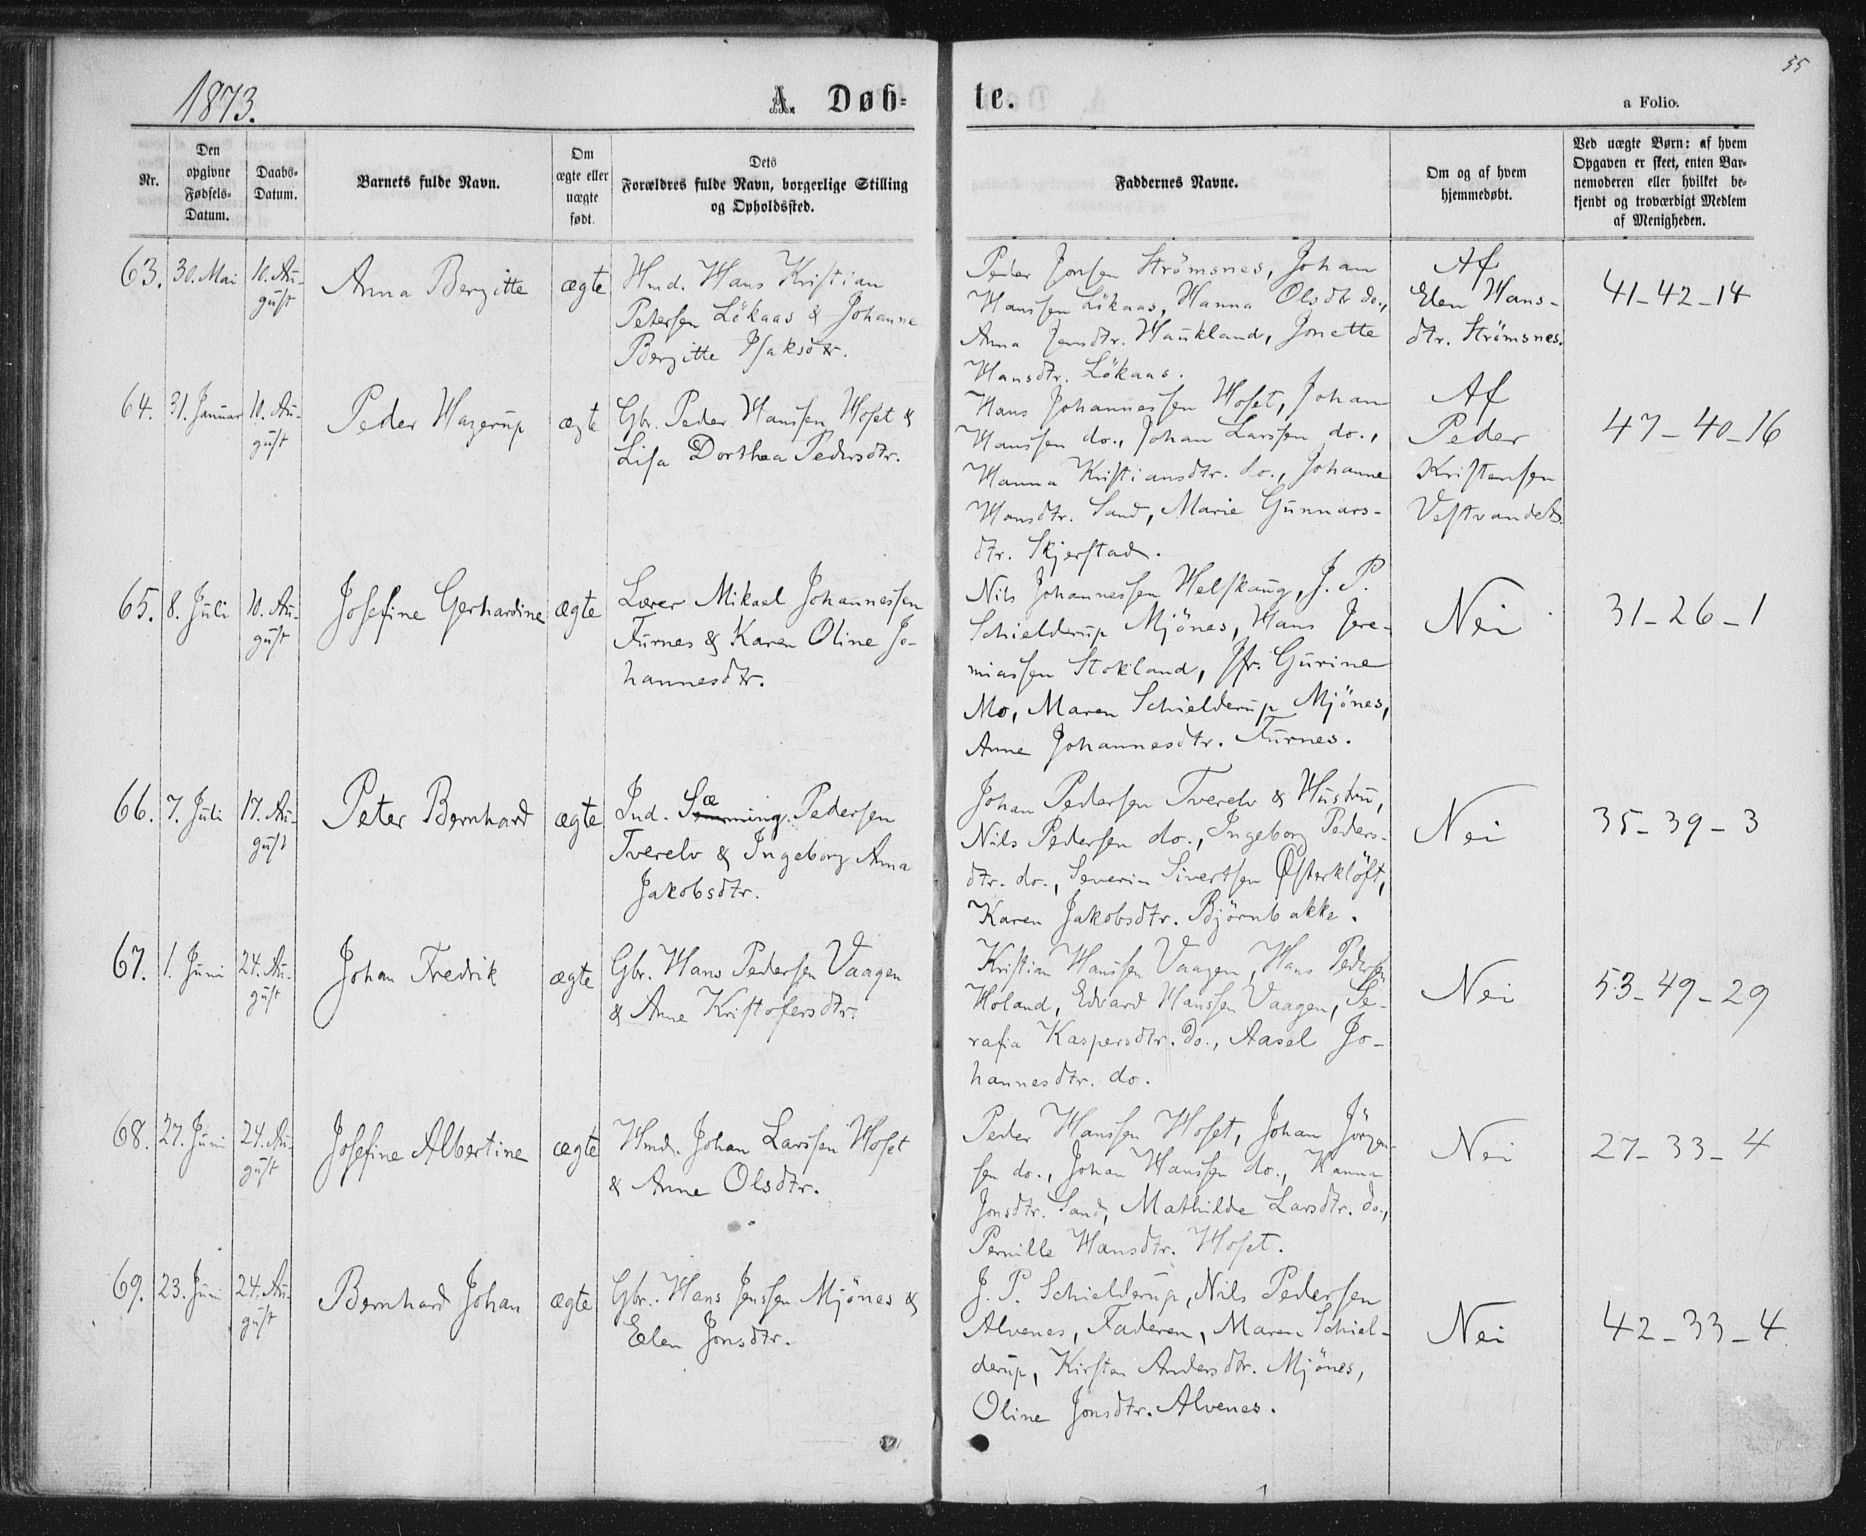 55
1873.
A. Døb-
te.
a Folio.
Nr.
Den opgivne Fødsels-Datum.
Daabs-Datum.
Barnets fulde Navn.
Om ægte eller uægte født.
Dets Forældres fulde Navn, borgerlige Stilling og Opholdssted.
Faddernes Navne.
Om og af hvem hjemmedøbt.
Ved uægte Børn: af hvem Opgaven er skeet, enten Barnemoderen eller hvilket bekjendt og troværdigt Medlem af Menigheden.
63. 30. Mai 10. Au-
gust
Anna Bergitte
ægte
Hmd. Hans Kristian
Petersen Lökaas & Johanne
Bergitte Isaksdtr.
Peder Jonsen Strömsnes, Johan
Hanssen Lökaas, Hanna Olsdtr do.,
Anna Jensdtr. Haukland, Jonette
Hansdtr. Lökaas.
Af
Elen Hans-
dtr. Strömsnes.
41-42-14
64. 31. Januar 10. Au-
gust
Peder Hagerup
ægte
Gbr. Peder Hanssen Hoset &
Lisa Dorthea Pedersdtr.
Hans Johannessen Hoset, Johan
Hanssen do., Johan Larssen do.,
Hanna Kristiansdtr. do., Johanne
Hansdtr. Sand, Marie Gunnars-
dtr. Skjerstad.
Af
Peder
Kristensen
Vestvandet.
47-40-16
65. 8. Juli 10. Au-
gust
Josefine Gerhardine
ægte
Lærer Mikael Johannessen
Furnes & Karen Oline Jo-
hannesdtr.
Nils Johannessen Helskaug, J. P.
Schielderup Mjönes, Hans Jere-
miassen Stokland, Jfr. Gurine
Mo, Maren Schielderup Mjönes,
Anne Johannesdtr. Furnes.
Nei
31-26-1
66. 7. Juli 17. Au-
gust
Peter Bernhard
ægte
Ind. Sæming Pedersen
Tverelv & Ingeborg Anna
Jakobsdtr.
Johan Pedersen Tverelv & Hustru,
Nils Pedersen do., Ingeborg Peders-
dtr. do., Severin Sivertsen Østerklöft,
Karen Jakobsdtr. Björnbakke.
Nei
35-39-3
67. 1. Juni 24. Au-
gust
Johan Fredrik
ægte
Gbr. Hans Pedersen Vaagen
& Anne Kristofersdtr.
Kristian Hanssen Vaagen, Hans Pedersen
Holand, Edvard Hanssen Vaagen, Se-
rafia Kaspersdtr. do., Aasel Jo-
hannesdtr. do.
Nei
53-49-29
68. 27. Juni 24. Au-
gust
Josefine Albertine
ægte
Hmd. Johan Larssen Hoset
& Anne Olsdtr.
Peder Hanssen Hoset, Johan Jörgen-
sen do., Johan Hanssen do., Hanna
Jonsdtr. Sand, Mathilde Larsdtr. do.,
Pernille Hansdtr. Hoset.
Nei
27-33-4
69. 23. Juni 24. Au-
gust
Bernhard Johan
ægte
Gbr. Hans Jenssen Mjönes &
Elen Jonsdtr.
J. P. Schielderup, Nils Pedersen
Alvenes, Faderen, Maren Schiel-
derup, Kirsten Andersdtr. Mjönes,
Oline Jonsdtr. Alvenes.
Nei
42-33-4